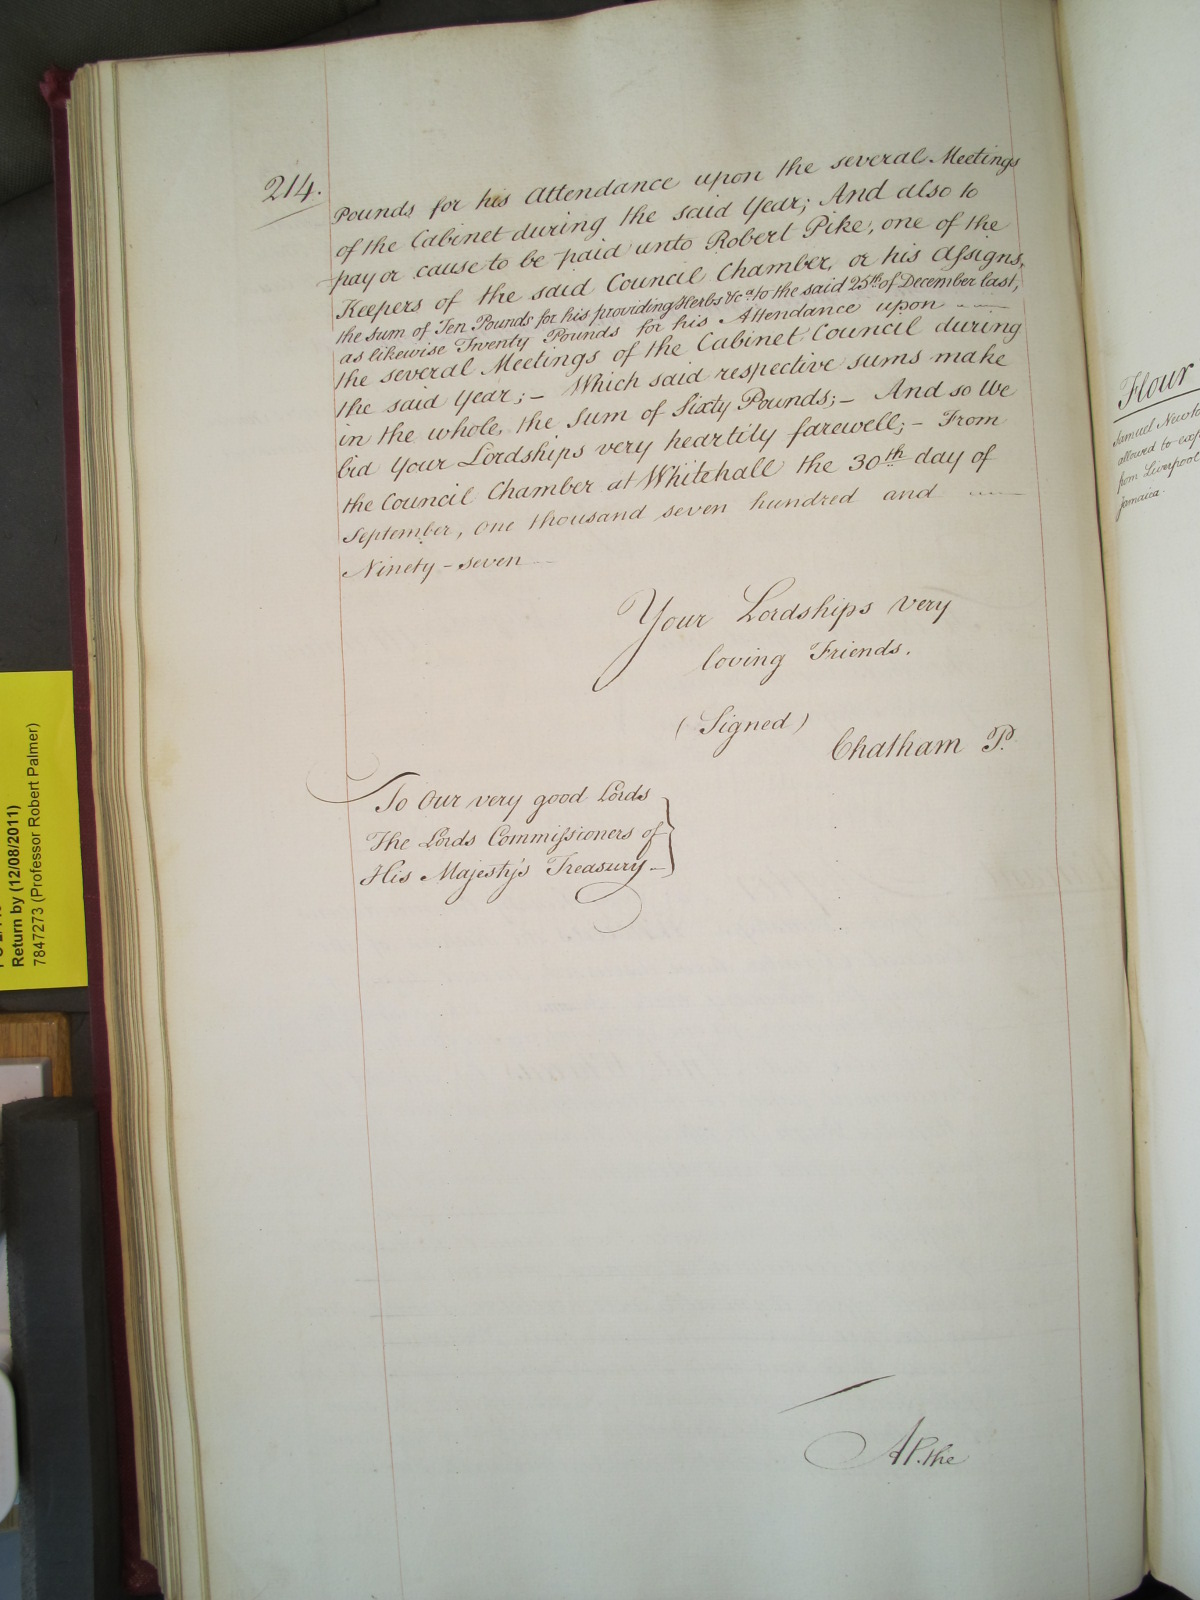 214.
Pounds for his Attendance upon the several Meetings
of the Cabinet during the said Year; And also to
pay or cause to be paid unto Robert Pike, one of the
Keepers of the said Council Chamber, or his Assigns,
the sum of Ten Pounds for his providing Herbs &ca. to the said 25th of December last,
as likewise Twenty Pounds for his Attendance upon
the several Meetings of the Cabinet Council during
the said Year; – Which said respective sums make
in the whole, the Sum of Sixty Pounds; – And so We
bid Your Lordships very heartily farewell; – From
the Council Chamber at Whitehall the 30th day of
September, one thousand seven hundred and
Ninety-seven
Your Lordships very
loving Friends.
(Signed)
Chatham P.
To Our very good Lords
The Lords Commissioners of
His Majesty's Treasury
At the
Flour
Samuel
allowed to
from Liverpool
Jamaica.
Return by (12/08/2011)
7847273 (Professor Robert Palmer)